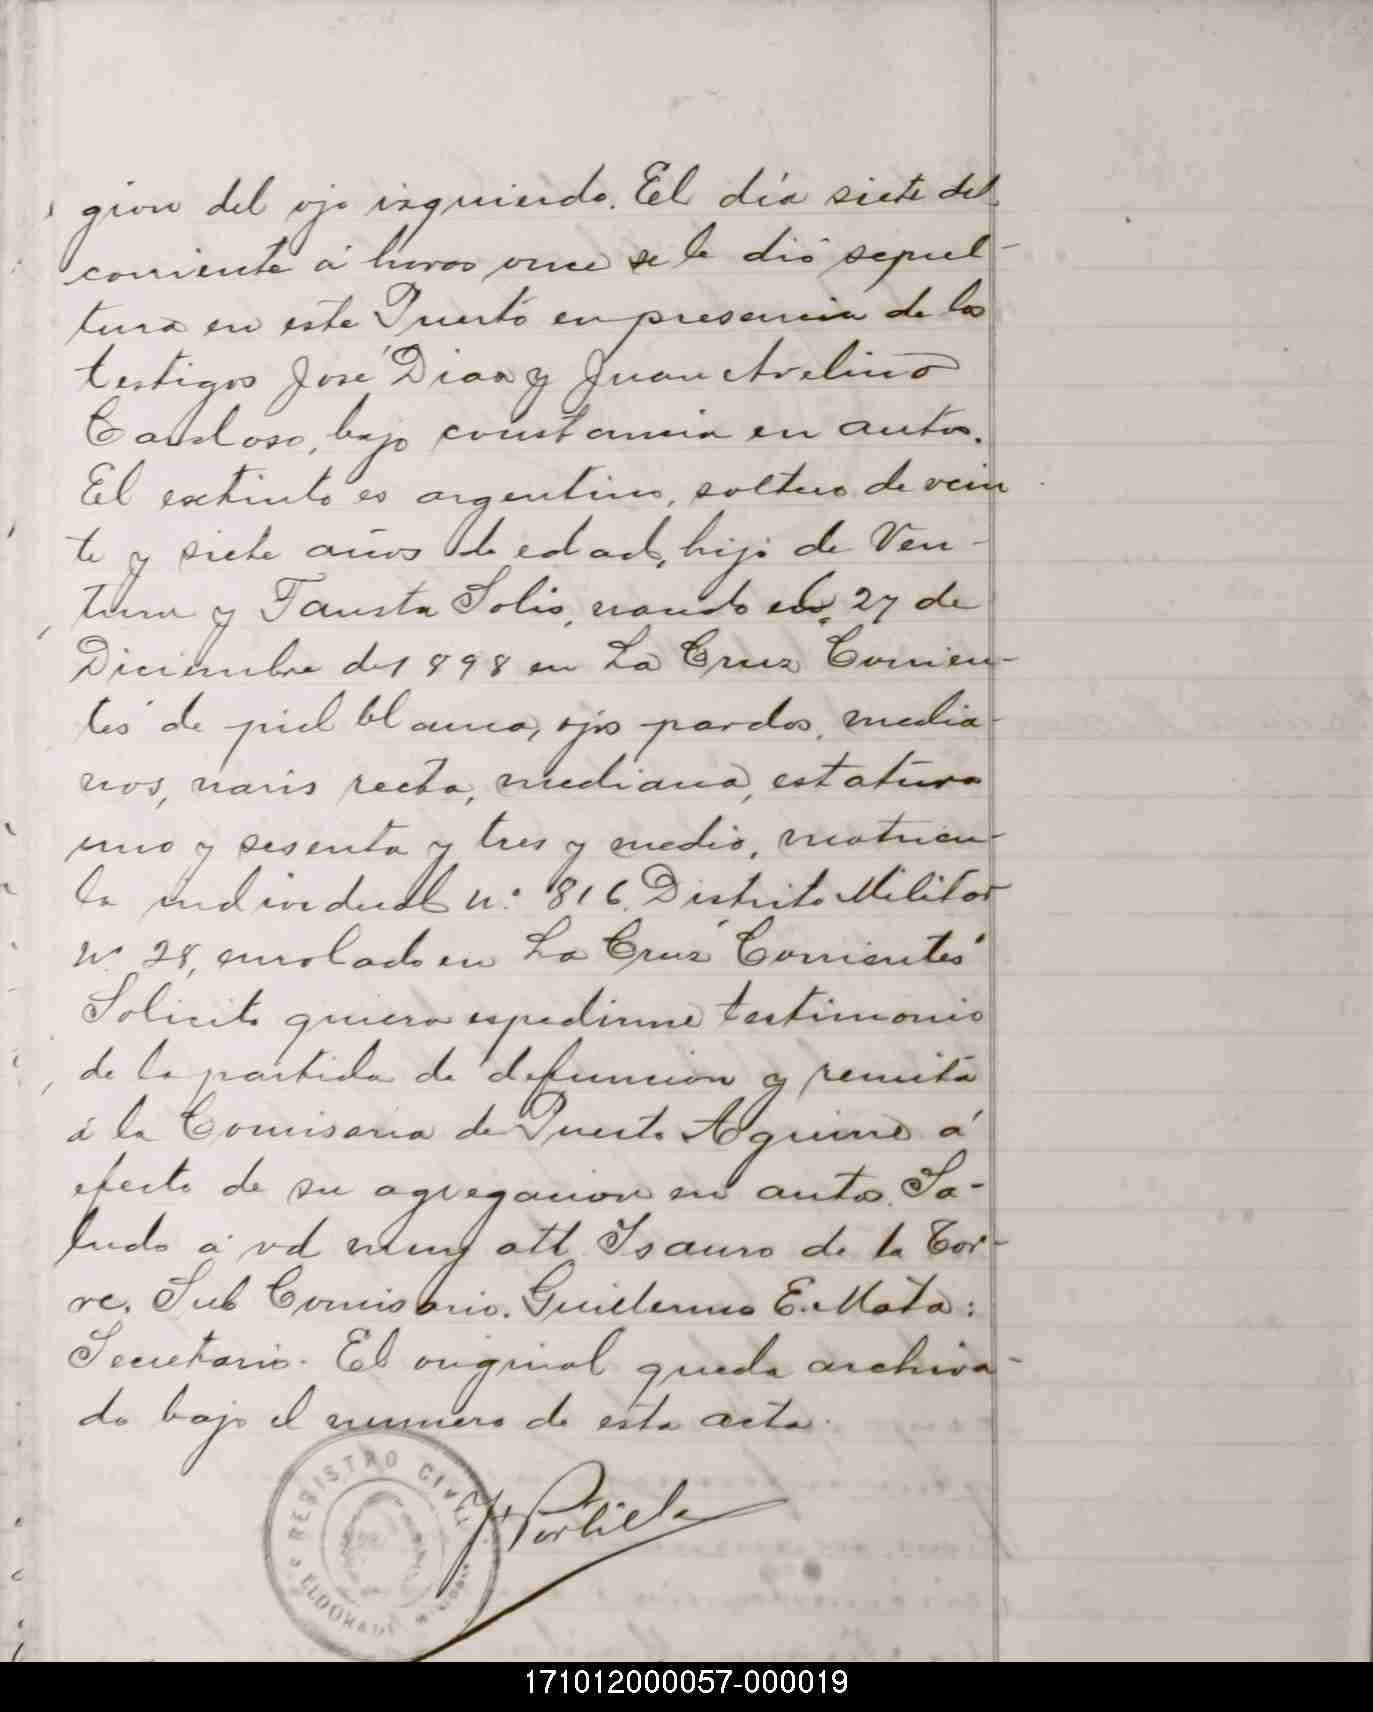 gion del ojo izquierdo. El día siete del
corriente á horas once se le dió sepul-
tura en este Puerto en presencia de los
testigos José Diaz y Juan Avelino
Cardoso, bajo constancia en autos.
El extinto es argentino, soltero de vein
te y siete años de edad, hijo de Ven-
tura y Fausta Solis, nacido el 27 de
Diciembre de 1898 en La Cruz Corrien-
tes de piel blanca, ojos pardos, media-
nos, naris recta, mediana, estatura
uno y sesenta y tres y medio, matricu-
la individual n.° 816. Distrito Militar
N° 28, enrolado en La Cruz "Corrientes"
Solicito quiera espedirme testimonio
de la partida de defuncion y remita
á la Comisaria de Puerto Aguirre á
efecto de su agregacion en autos. Sa-
ludo á vd muy att. Isauro de la Tor-
re. Sub Comisario. Guillermo E. Mata:
Secretario. El original queda archiva-
do bajo el numero de esta acta.
REGISTRO CIVIL
ELDORADO
Portillo
171012000057-000019